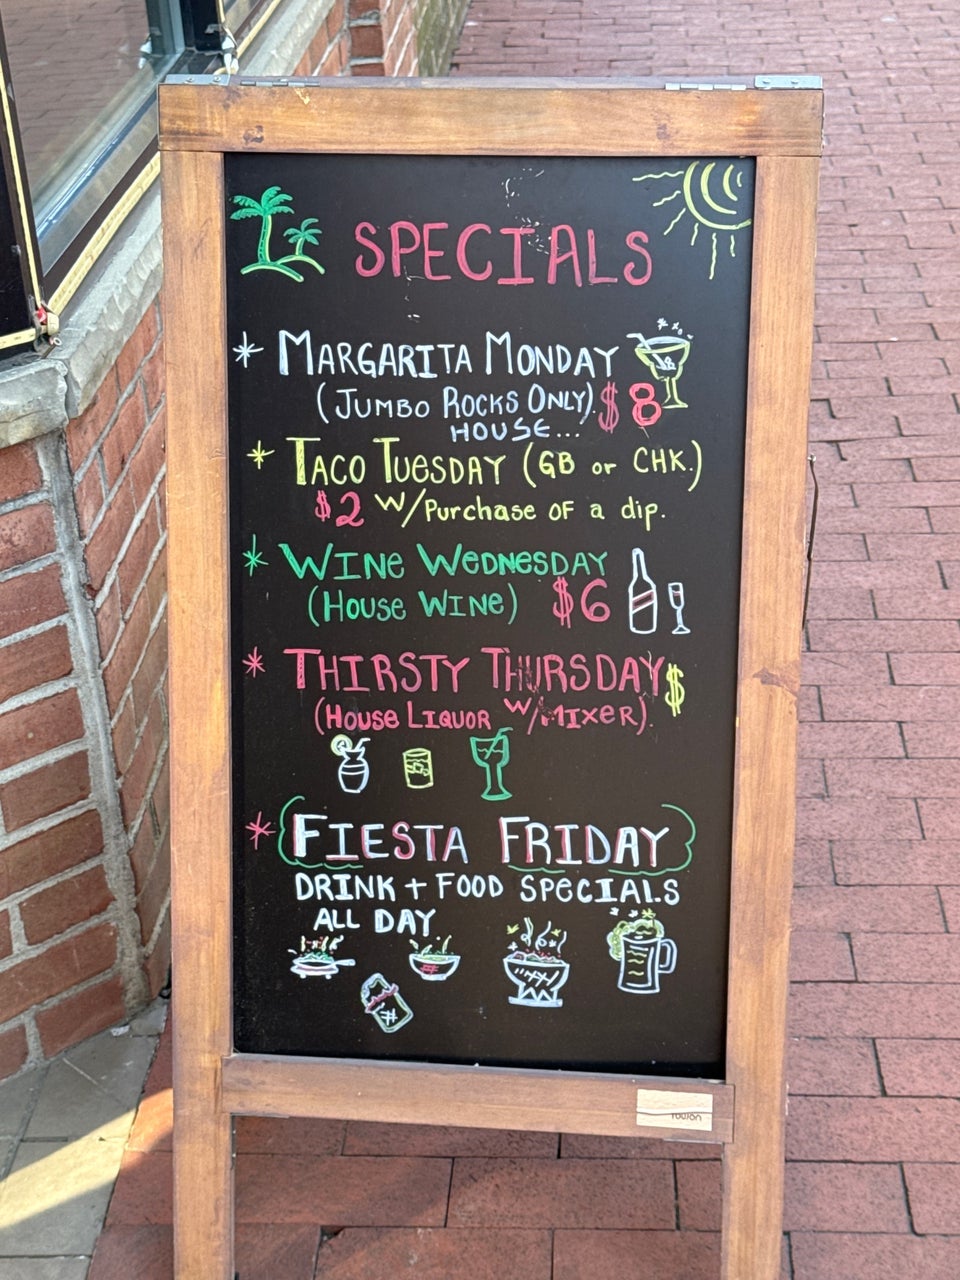 SPECIALS
* MARGARITA MONDAY
(JUMBO ROCKS ONLY). $8
HOUSE...
* TACO TUESDAY (GB or CHK.)
$2 W/Purchase OF a dip.
* WINE WEDNESDAY
(HOUSE WINE) $6
* THIRSTY THURSDAY $
(HOUSE LIQUOR W/MIXER).
* FIESTA FRIDAY
DRINK + FOOD SPECIALS
ALL DAY